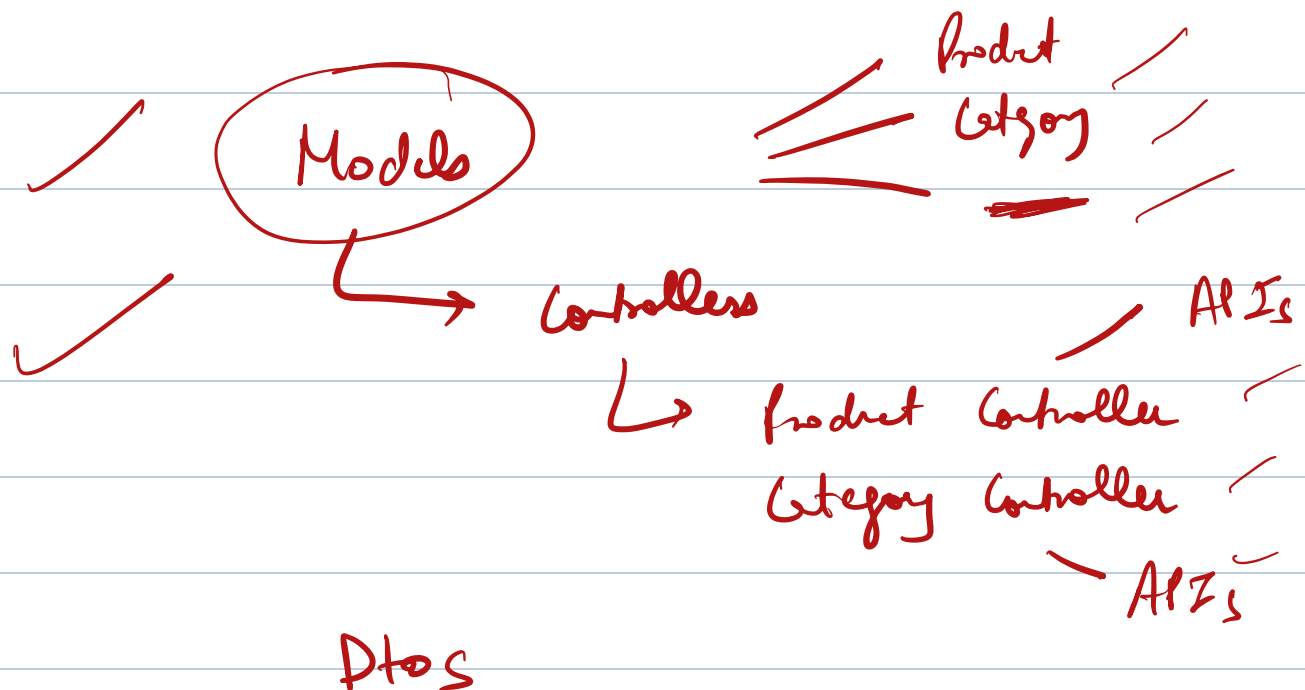 Product
Category
Models
Controllers
APIs
Product Controller
Category Controller
APIs
Dtos